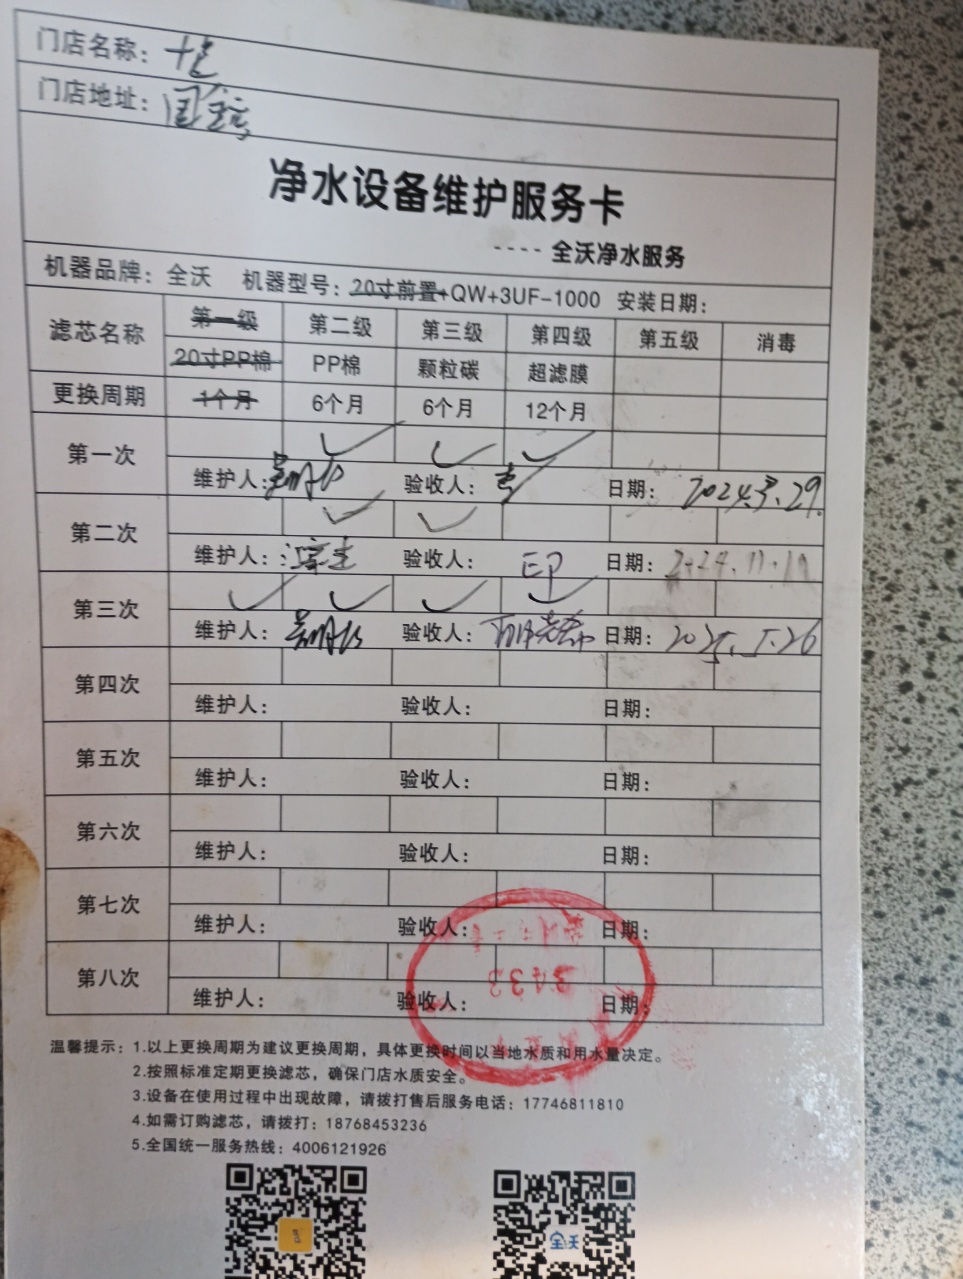 门店名称：
门店地址：
净水设备维护服务卡
---- 全沃净水服务
机器品牌：全沃 机器型号：20寸前置+QW+3UF-1000 安装日期：
滤芯名称 第一级 第二级 第三级 第四级 第五级 消毒
20寸PP棉 PP棉 颗粒碳 超滤膜
更换周期 1个月 6个月 6个月 12个月
第一次 ✓ ✓ ✓
维护人： 验收人： 日期：
第二次 ✓ ✓
维护人： 验收人： 日期：2024.11.19
第三次 ✓ ✓ ✓ ✓
维护人： 验收人： 日期：2025.5.26
第四次
维护人： 验收人： 日期：
第五次
维护人： 验收人： 日期：
第六次
维护人： 验收人： 日期：
第七次
维护人： 验收人： 日期：
第八次
维护人： 验收人： 日期：
温馨提示：1.以上更换周期为建议更换周期，具体更换时间以当地水质和用水量决定。
2.按照标准定期更换滤芯，确保门店水质安全。
3.设备在使用过程中出现故障，请拨打售后服务电话：17746811810
4.如需订购滤芯，请拨打：18768453236
5.全国统一服务热线：4006121926
全沃